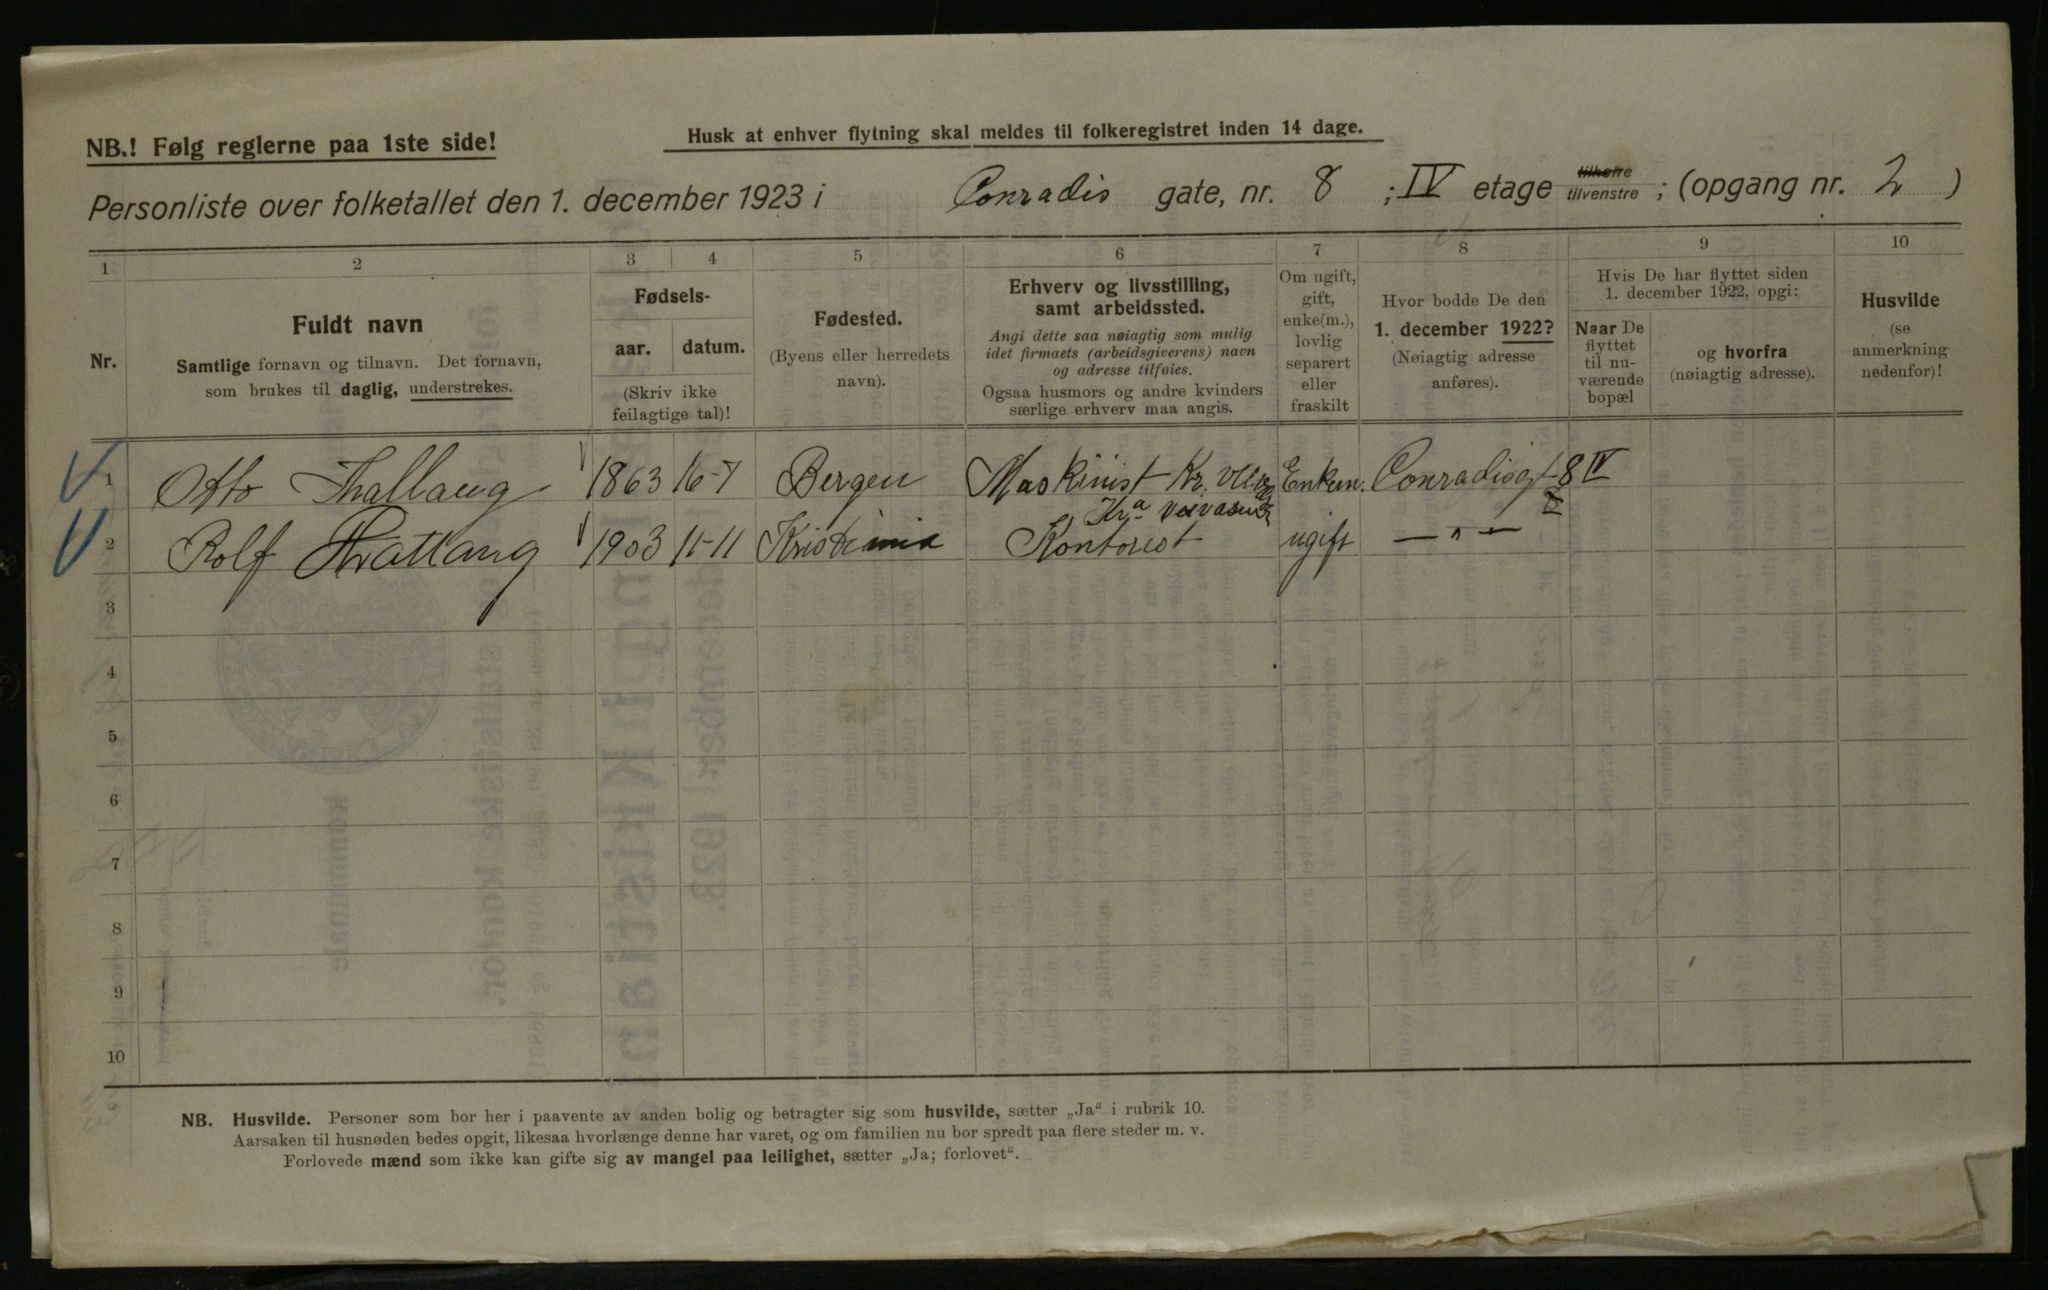 NB.! Følg reglerne paa 1ste side!
Husk at enhver flytning skal meldes til folkeregistret inden 14 dage.
Personliste over folketallet den 1. december 1923 i Conradis gate, nr. 8 ; IV etage tilhøire tilvenstre ; (opgang nr. 2 )
1 2 3 4 5 6 7 8 9 10
Nr.
Fuldt navn
Samtlige fornavn og tilnavn. Det fornavn,
som brukes til daglig, understrekes.
Fødsels-
aar. datum.
(Skriv ikke
feilagtige tal)!
Fødested.
(Byens eller herredets
navn).
Erhverv og livsstilling,
samt arbeidssted.
Angi dette saa nøiagtig som mulig
idet firmaets (arbeidsgiverens) navn
og adresse tilføies.
Ogsaa husmors og andre kvinders
særlige erhverv maa angis.
Om ugift,
gift,
enke(m.),
lovlig
separert
eller
fraskilt
Hvor bodde De den
1. december 1922?
(Nøiagtig adresse
anføres).
Hvis De har flyttet siden
1. december 1922, opgi:
Naar De
flyttet
til nu-
værende
bopæl
og hvorfra
(nøiagtig adresse).
Husvilde
(se
anmerkning
nedenfor)!
1 Otto Thallaug 1863 16-7 Bergen Maskinist Kr. Enkem. Conradisgt 8 IV
Kra
2 Rolf Thallaug 1903 11-11 Kristiania Kontorist ugift — " —
3
4
5
6
7
8
9
10
NB. Husvilde. Personer som bor her i paavente av anden bolig og betragter sig som husvilde, sætter „Ja" i rubrik 10.
Aarsaken til husnøden bedes opgit, likesaa hvorlænge denne har varet, og om familien nu bor spredt paa flere steder m. v.
Forlovede mænd som ikke kan gifte sig av mangel paa leilighet, sætter „Ja; forlovet".